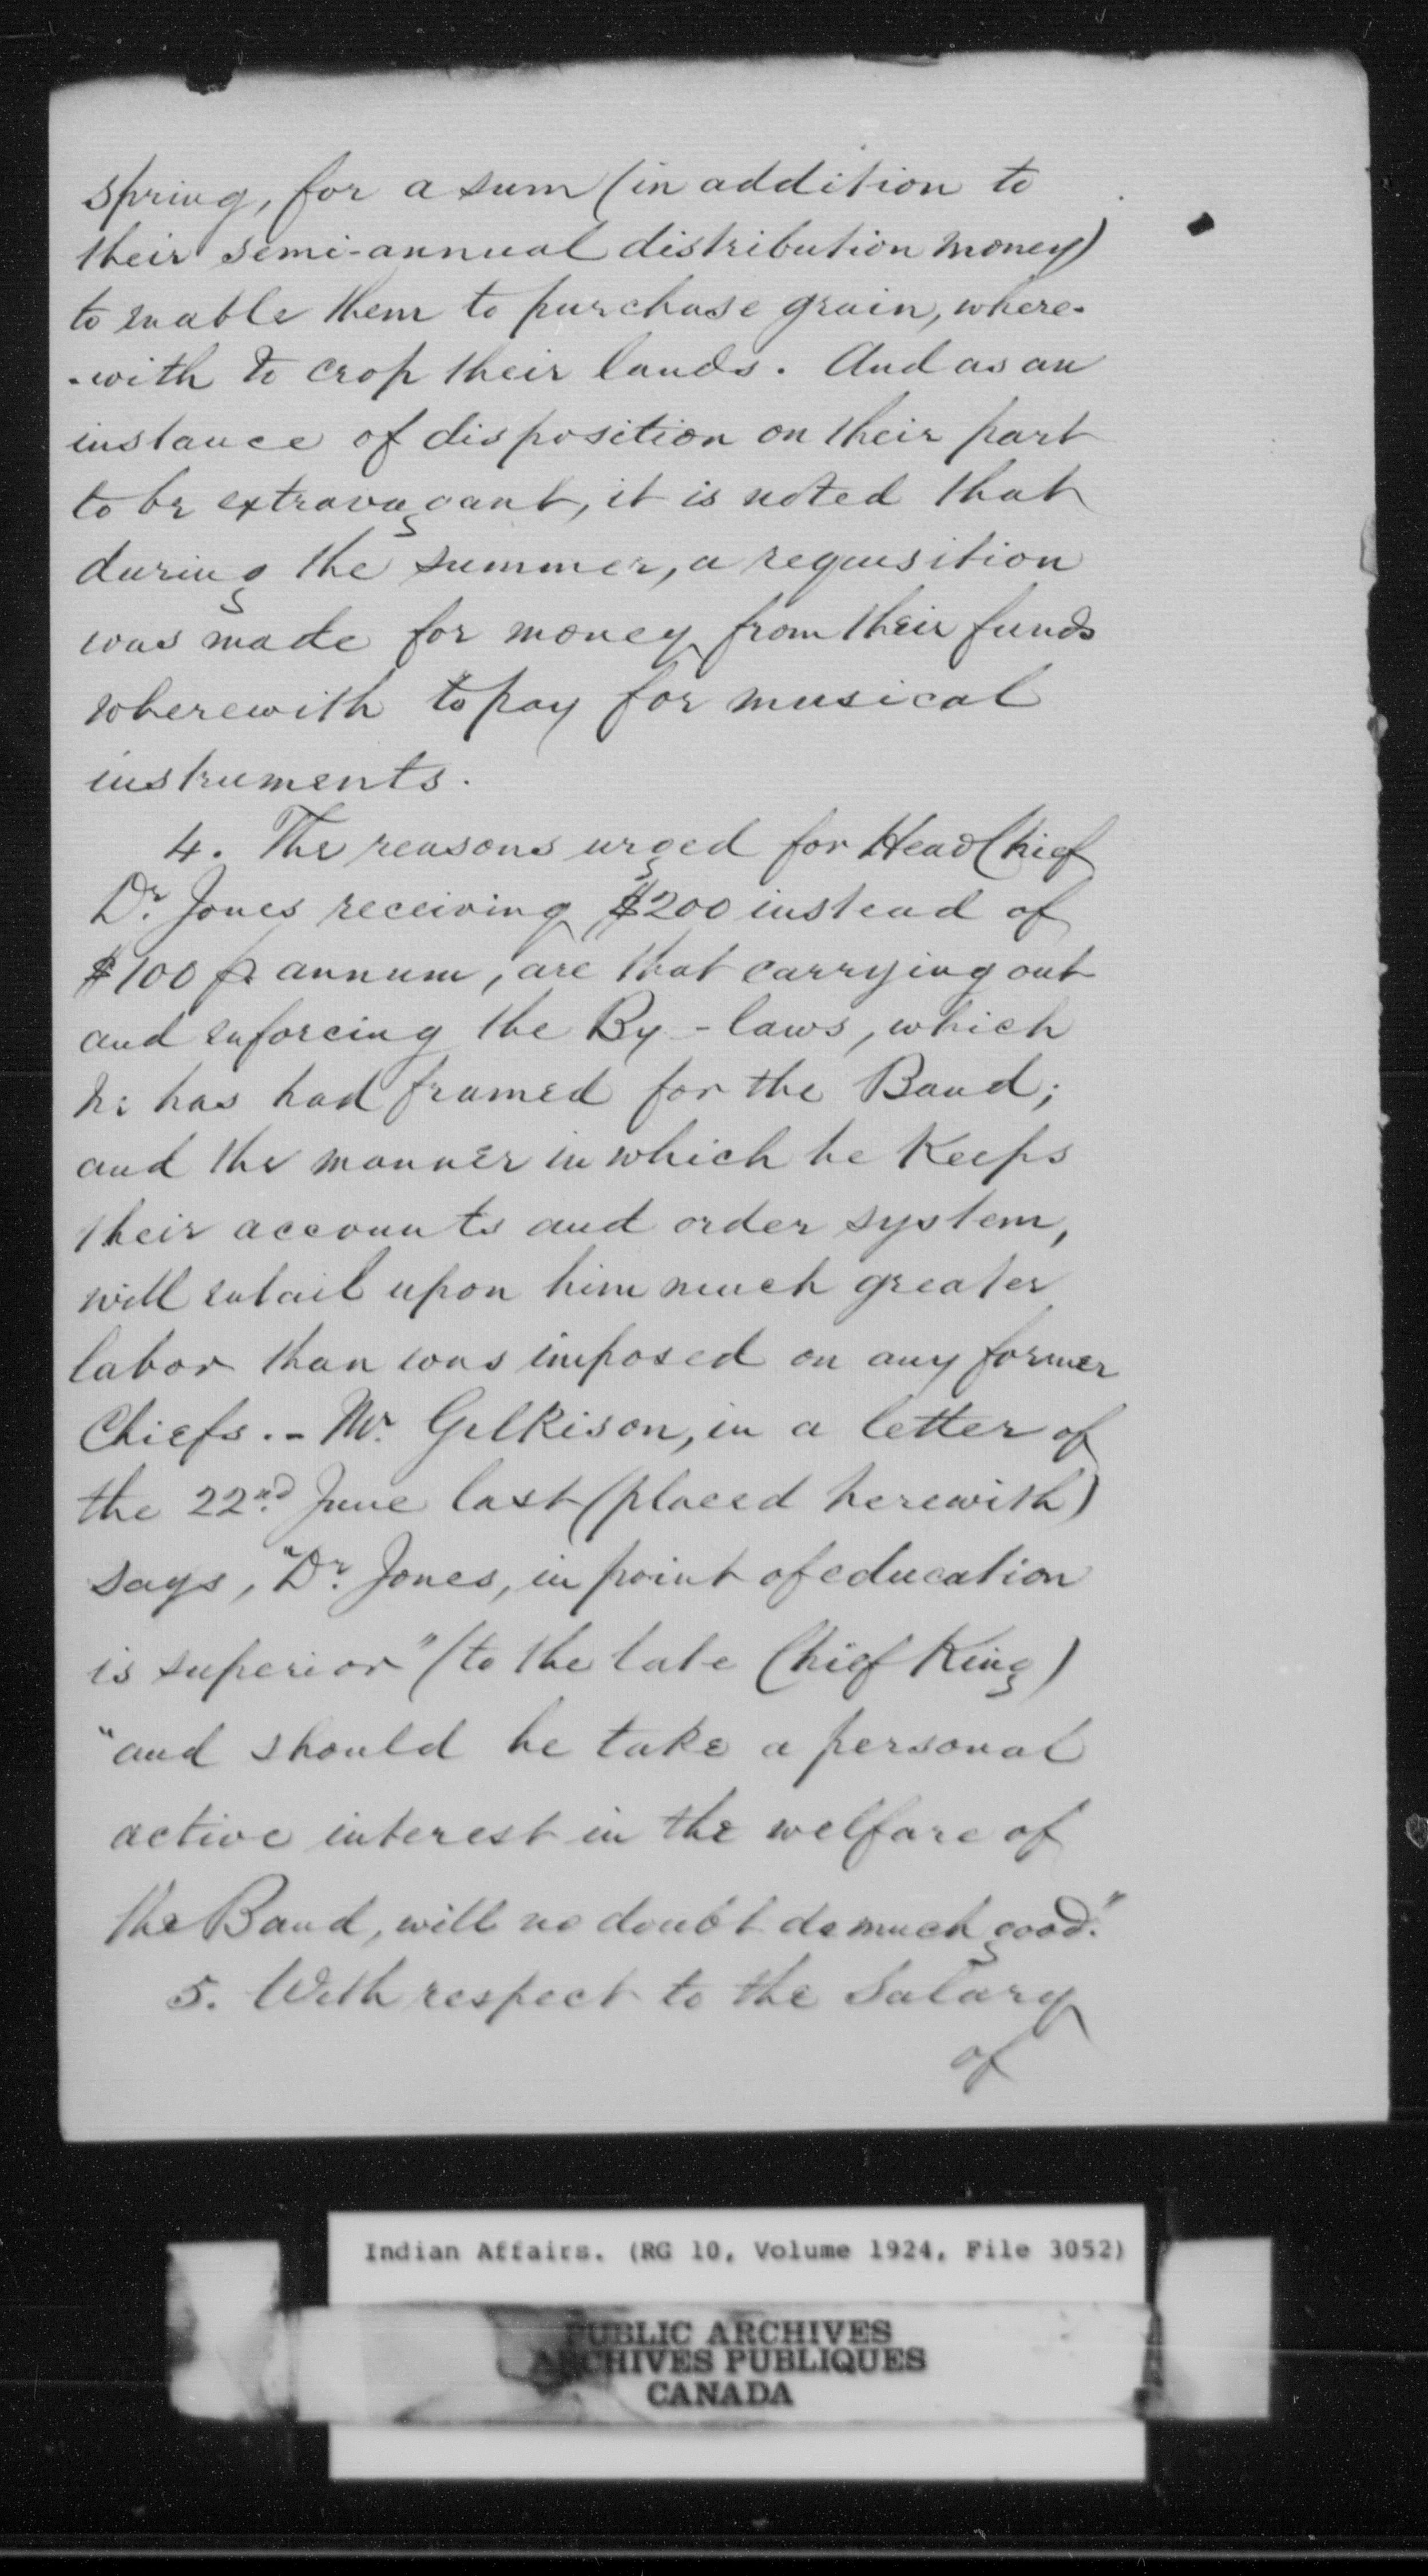 spring, for a sum (in addition to
their semi-annual distribution money)
to enable them to purchase grain, where-
-with to crop their lands. And as an
instance of disposition on their part
to be extravagant, it is noted that
during the summer, a requisition
was made for money from their funds
wherewith to pay for musical
instruments.
4. The reasons urged for Head Chief
Dr. Jones receiving $200 instead of
$100 pr annum, are that carrying out
and enforcing the By-laws, which
he has had framed for the Band;
and the manner in which he Keeps
their accounts and order system,
will entail upon him much greater
labor than was imposed on any former
Chiefs. - Mr. Gilkison, in a letter of
the 22nd. June last (placed herewith)
says, "Dr. Jones, in point of education
is superior" (to the late Chief King)
"and should he take a personal
active interest in the welfare of
the Band, will no doubt do much good."
5. With respect to the Salary
of
Indian Affairs. (RG 10, Volume 1924, File 3052)
PUBLIC ARCHIVES
ARCHIVES PUBLIQUES
CANADA